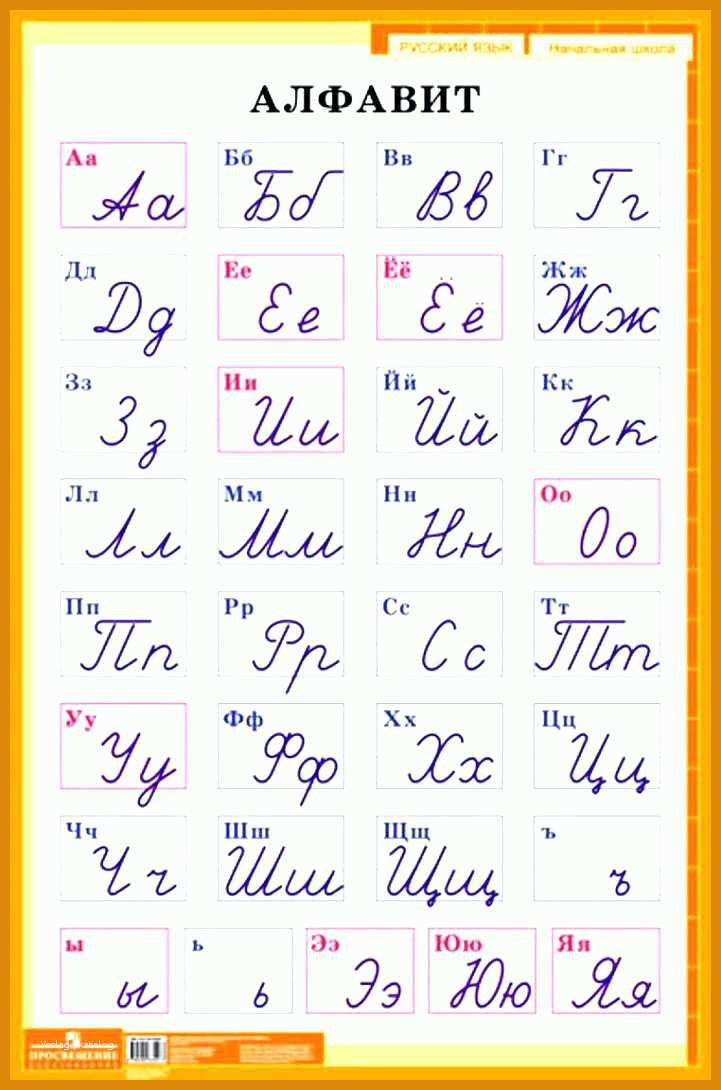 РУССКИЙ ЯЗЫК Начальная школа
АЛФАВИТ
Аа Бб Вв Гг
Аа Бб Вв Гг
Дд Ее Ёё Жж
Дд Ее Ёё Жж
Зз Ии Йй Кк
Зз Ии Йй Кк
Лл Мм Нн Оо
Лл Мм Нн Оо
Пп Рр Сс Тт
Пп Рр Сс Тт
Уу Фф Хх Цц
Уу Фф Хх Цц
Чч Шш Щщ ъ
Чч Шш Щщ ъ
ы ь Ээ Юю Яя
ы ь Ээ Юю Яя
ПРОСВЕЩЕНИЕ